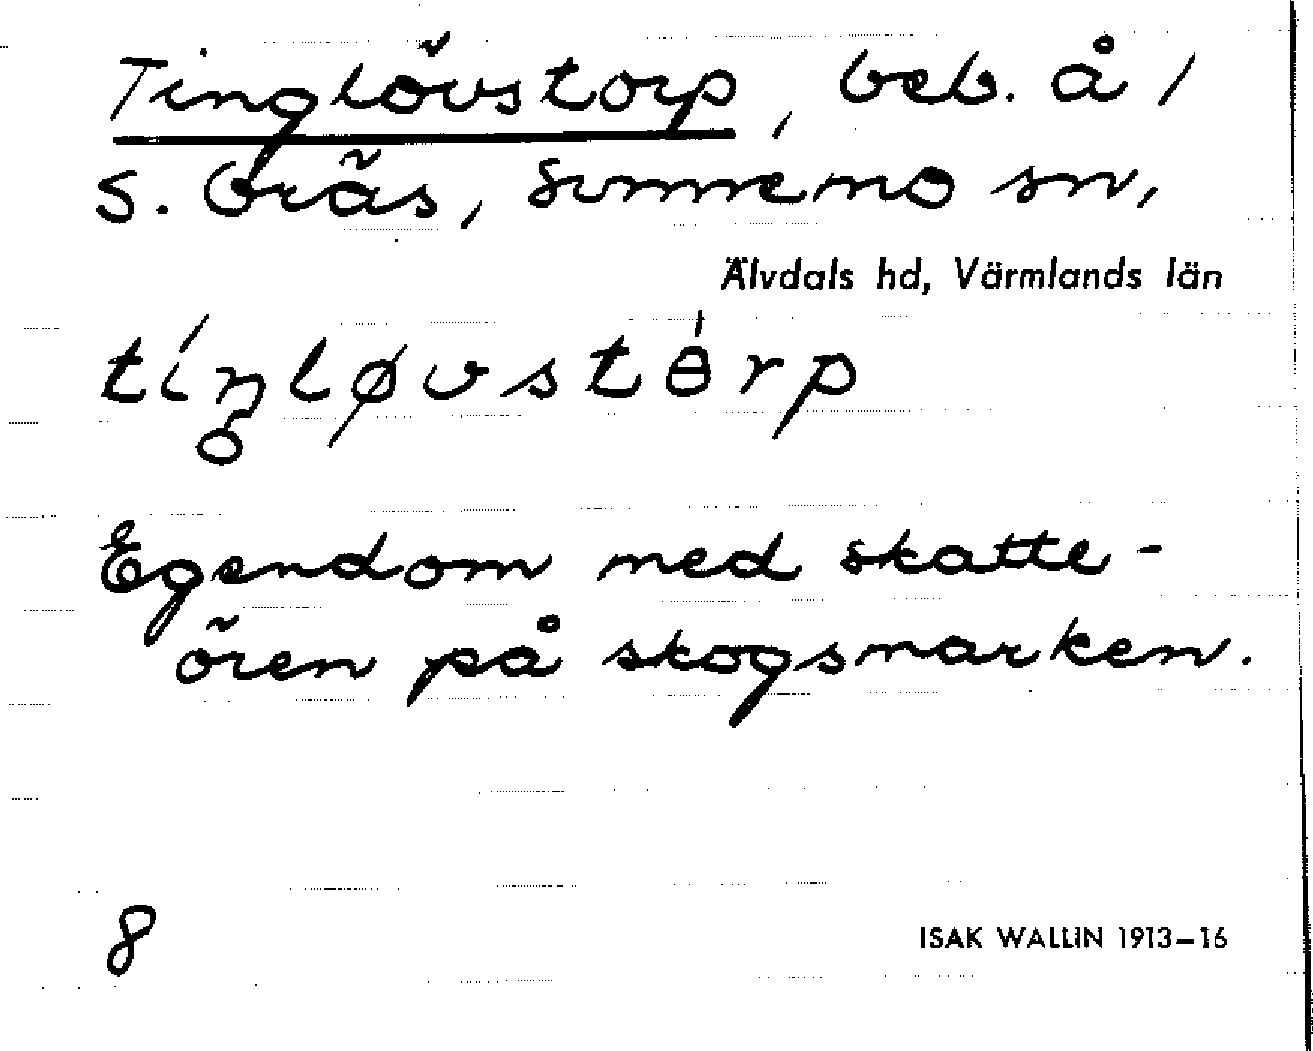 Tinglövstorp, beb. å /
S. Gräs, Sunnemo sn,
Älvdals hd, Värmlands län
tíŋløvstɵ̀rp
Egendom med skatte-
ören på skogsmarken.
8
ISAK WALLIN 1913–16